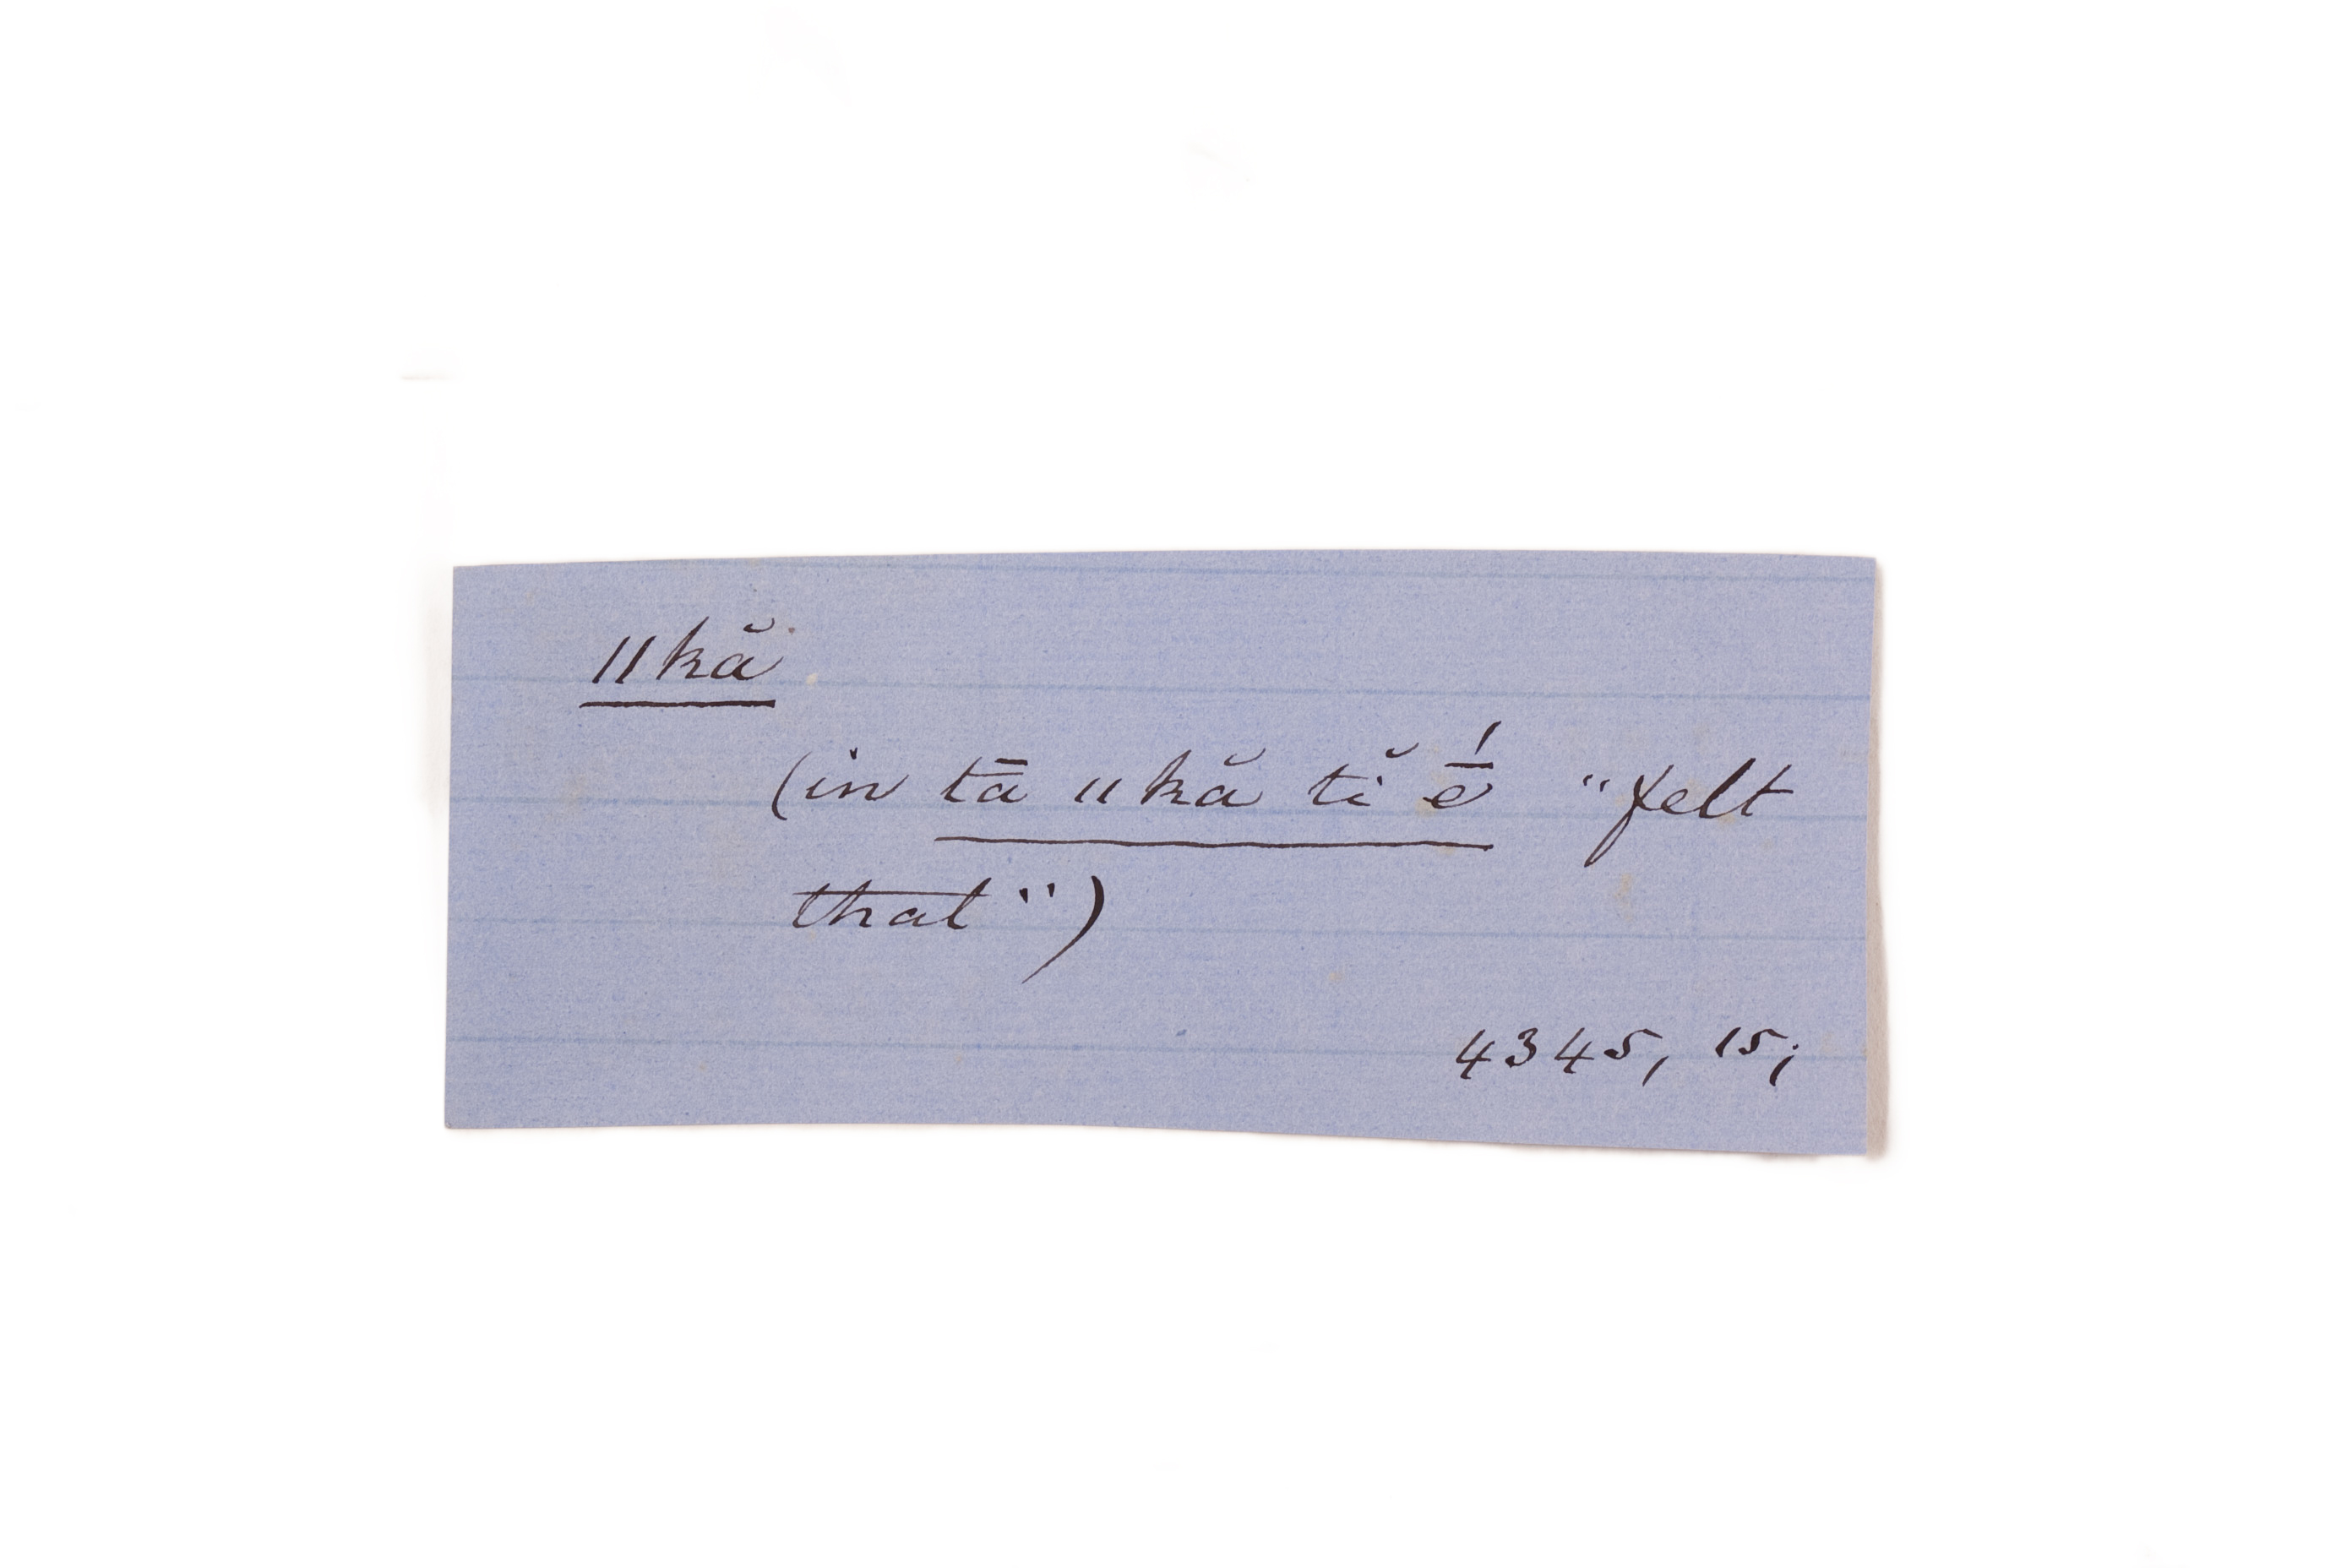 ǁkă
(in tā ǁkă tĭ ḗ "felt
that")
4345, 15;